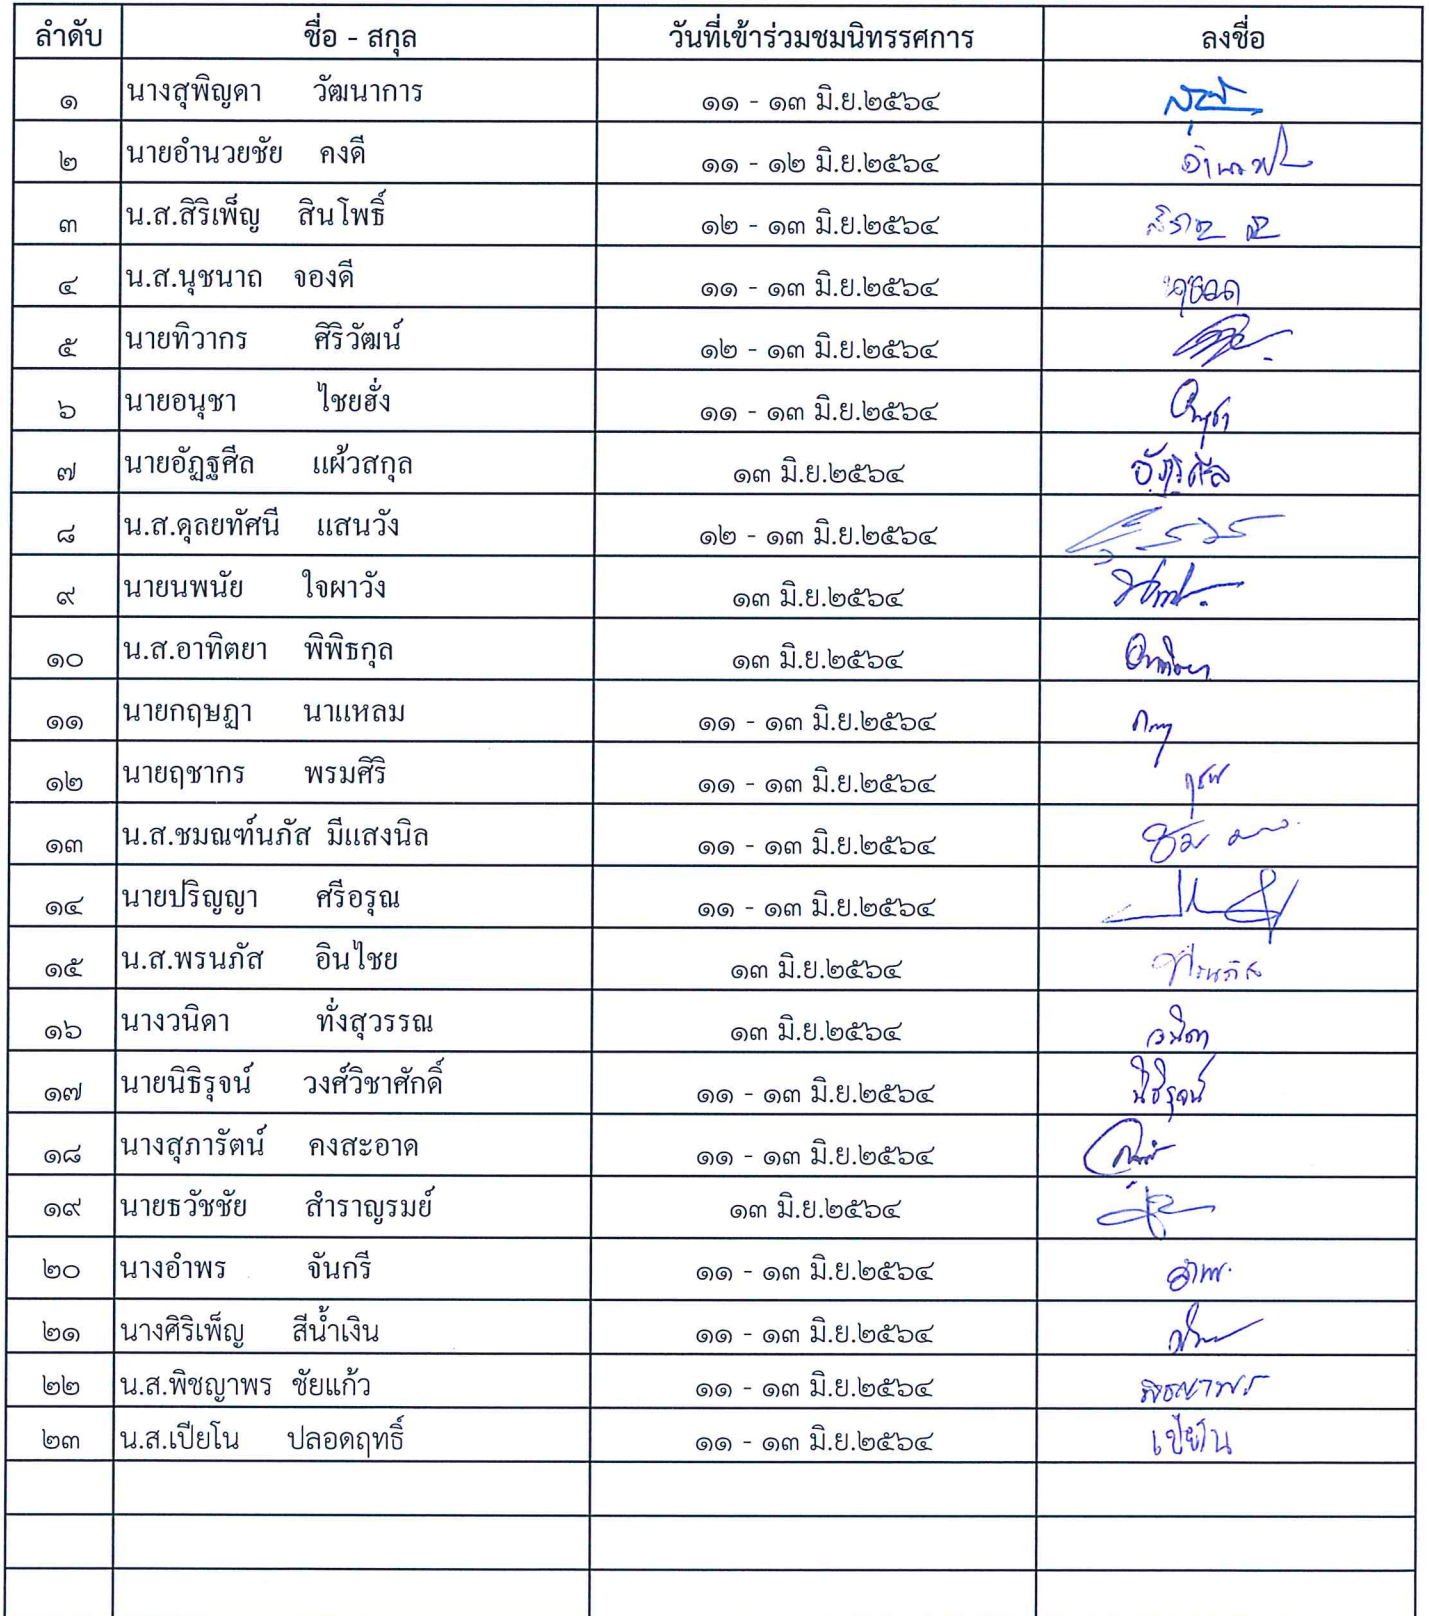 ลำดับ ชื่อ - สกุล วันที่เข้าร่วมชมนิทรรศการ ลงชื่อ
๑ นางสุพิญดา วัฒนาการ ๑๑ - ๑๓ มิ.ย.๒๕๖๔
๒ นายอำนวยชัย คงดี ๑๑ - ๑๒ มิ.ย.๒๕๖๔
๓ น.ส.สิริเพ็ญ สินโพธิ์ ๑๒ - ๑๓ มิ.ย.๒๕๖๔
๔ น.ส.นุชนาถ จองดี ๑๑ - ๑๓ มิ.ย.๒๕๖๔
๕ นายทิวากร ศิริวัฒน์ ๑๒ - ๑๓ มิ.ย.๒๕๖๔
๖ นายอนุชา ไชยฮั่ง ๑๑ - ๑๓ มิ.ย.๒๕๖๔ อนุชา
๗ นายอัฏฐศีล แผ้วสกุล ๑๓ มิ.ย.๒๕๖๔ อัฏฐศีล
๘ น.ส.ดุลยทัศนี แสนวัง ๑๒ - ๑๓ มิ.ย.๒๕๖๔
๙ นายนพนัย ใจผาวัง ๑๓ มิ.ย.๒๕๖๔
๑๐ น.ส.อาทิตยา พิพิธกุล ๑๓ มิ.ย.๒๕๖๔ อาทิตยา
๑๑ นายกฤษฏา นาแหลม ๑๑ - ๑๓ มิ.ย.๒๕๖๔
๑๒ นายฤชากร พรมศิริ ๑๑ - ๑๓ มิ.ย.๒๕๖๔
๑๓ น.ส.ชมณฑ์นภัส มีแสงนิล ๑๑ - ๑๓ มิ.ย.๒๕๖๔
๑๔ นายปริญญา ศรีอรุณ ๑๑ - ๑๓ มิ.ย.๒๕๖๔
๑๕ น.ส.พรนภัส อินไชย ๑๓ มิ.ย.๒๕๖๔ พรนภัส
๑๖ นางวนิดา ทั่งสุวรรณ ๑๓ มิ.ย.๒๕๖๔ วนิดา
๑๗ นายนิธิรุจน์ วงศ์วิชาศักดิ์ ๑๑ - ๑๓ มิ.ย.๒๕๖๔ นิธิรุจน์
๑๘ นางสุภารัตน์ คงสะอาด ๑๑ - ๑๓ มิ.ย.๒๕๖๔
๑๙ นายธวัชชัย สำราญรมย์ ๑๓ มิ.ย.๒๕๖๔
๒๐ นางอำพร จันกรี ๑๑ - ๑๓ มิ.ย.๒๕๖๔
๒๑ นางศิริเพ็ญ สีน้ำเงิน ๑๑ - ๑๓ มิ.ย.๒๕๖๔
๒๒ น.ส.พิชญาพร ชัยแก้ว ๑๑ - ๑๓ มิ.ย.๒๕๖๔ พิชญาพร
๒๓ น.ส.เปียโน ปลอดฤทธิ์ ๑๑ - ๑๓ มิ.ย.๒๕๖๔ เปียโน